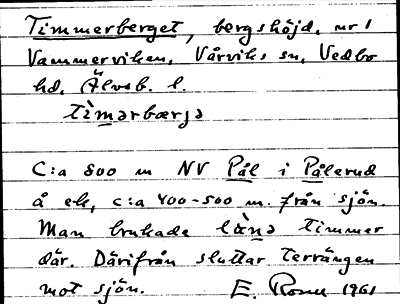 Timmerberget, bergshöjd, nr 1
Vammerviken, Vårviks sn, Vedbo
hd, Älvsb. l.
tìmərbærjə
C:a 800 m NV Pål i Pålerud
å ek, c:a 400-500 m. från sjön.
Man brukade timmer
där. Därifrån sluttar terrängen
mot sjön. E. 1961